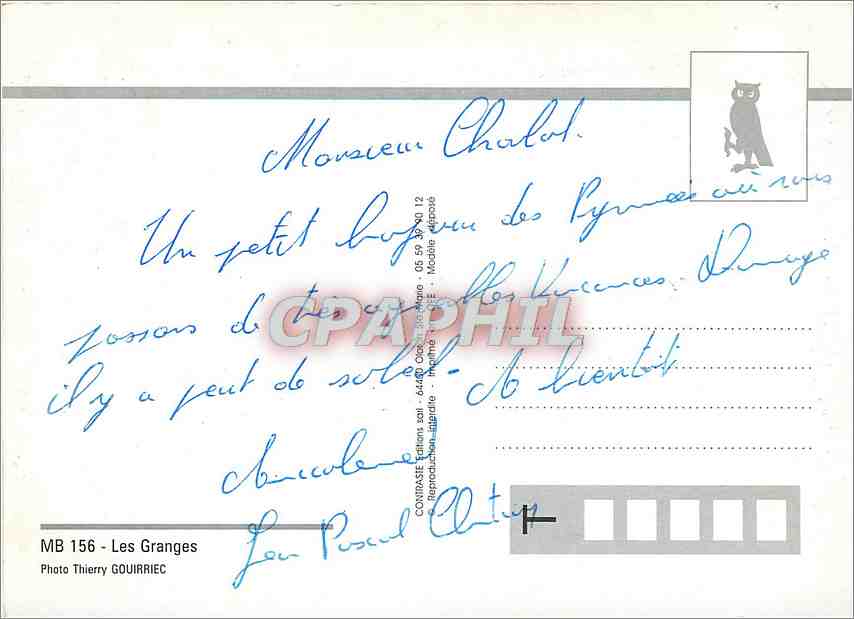 Monsieur Chalot.
Un petit bonjour des Pyrénées où nous
passons de très agréables Vacances. Dommage
il y a peut de soleil. A bientôt
Amicalement
Jean Pascal
CPAPHIL
CONTRASTE Editions sarl - 64400 Oloron Ste-Marie - 05 59 39 90 12
© Reproduction interdite - Imprimé CEE - Modèle déposé
MB 156 - Les Granges
Photo Thierry GOUIRRIEC